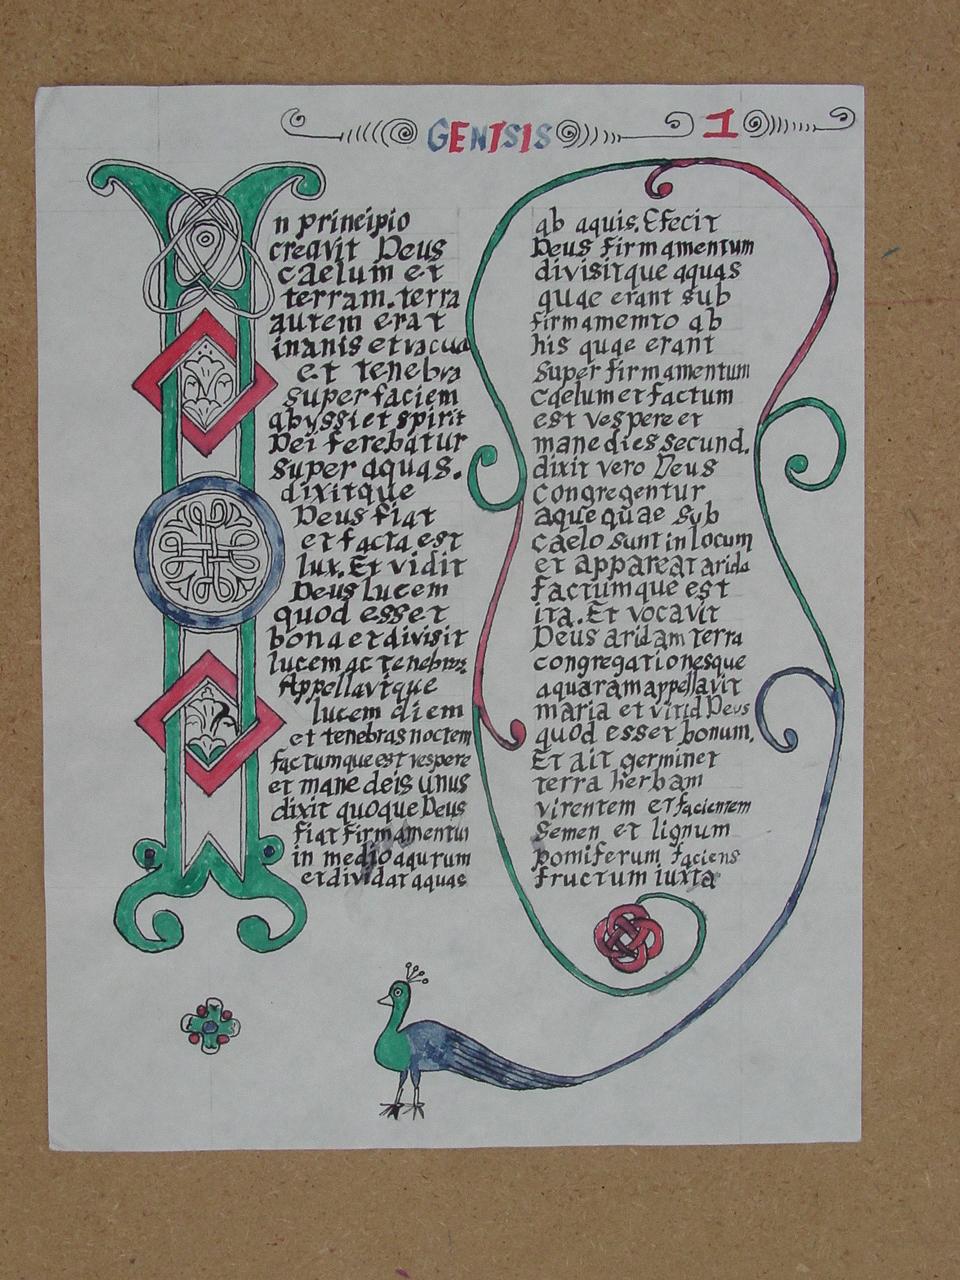 GENISIS 1
In principio
creavit Deus
caelum et
terram. terra
autem erat
inanis et vacua
et tenebra
super faciem
abyssi et spirit
Dei ferebatur
super aquas.
dixitque
Deus fiat
et facta est
lux. Et vidit
Deus lucem
quod esset
bona et divisit
lucem ac tenebras
Appellavitque
lucem diem
et tenebras noctem
factumque est vespere
et mane deis unus
dixit quoque Deus
fiat firmamentum
in medio aqurum
et dividat aquas
ab aquis. Efecit
Deus firmamentum
divisitque aquas
quae erant sub
firmamemto ab
his quae erant
super firmamentum
caelum et factum
est vespere et
mane dies secund.
dixit vero Deus
congregentur
aque quae sub
caelo sunt in locum
et appareat arida
factumque est
ita. Et vocavit
Deus aridam terra
congregationesque
aquaram appellavit
maria et vitid Deus
quod esset bonum.
Et ait germinet
terra herbam
virentem et facientem
semen et lignum
pomiferum faciens
fructum iuxta